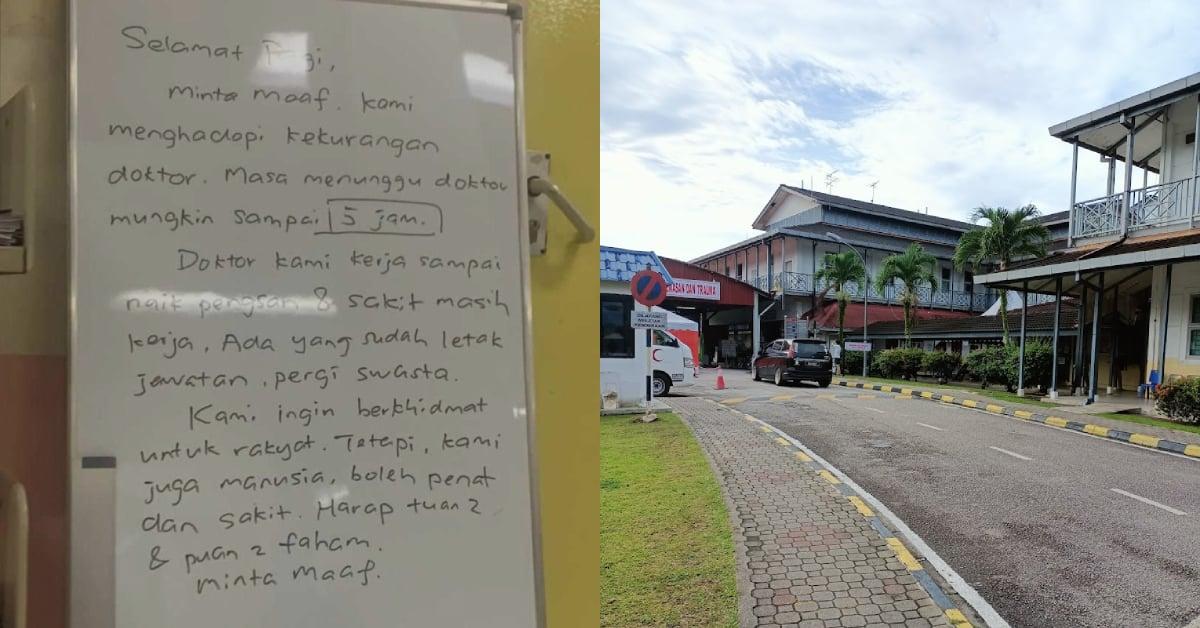 Selamat Pagi,
minta maaf. Kami
menghadapi kekurangan
doktor. Masa menunggu doktor
mungkin sampai 5 jam.
Doktor kami kerja sampai
naik pengsan & sakit masih
kerja. Ada yang sudah letak
jawatan, pergi swasta.
Kami ingin berkhidmat
untuk rakyat. Tetapi, kami
juga manusia, boleh penat
dan sakit. Harap tuan2
& puan2 faham.
minta maaf.
KASAN DAN TRAUMA